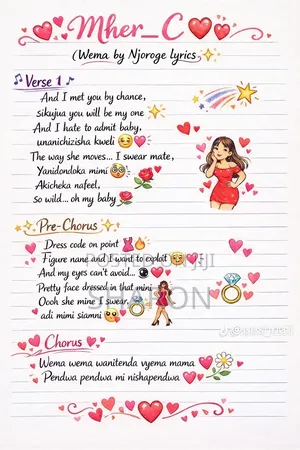 Mher_C
(Wema by Njoroge lyrics
Verse 1
And I met you by chance,
sikujua you will be my one
And I hate to admit baby,
unanichizisha kweli
The way she moves... I swear mate,
Yanidondoka mimi
Akicheka nafeel,
so wild.. oh my baby
Pre-Chorus
Dress code on point
Figure nane and I want to exploit
And my eyes can't avoid...
Pretty face dressed in that mini
Oooh she mine I swear,
adi mimi siamni
Chorus
Wema wema wanitenda vyema mama
Pendwa pendwa mi nishapendwa